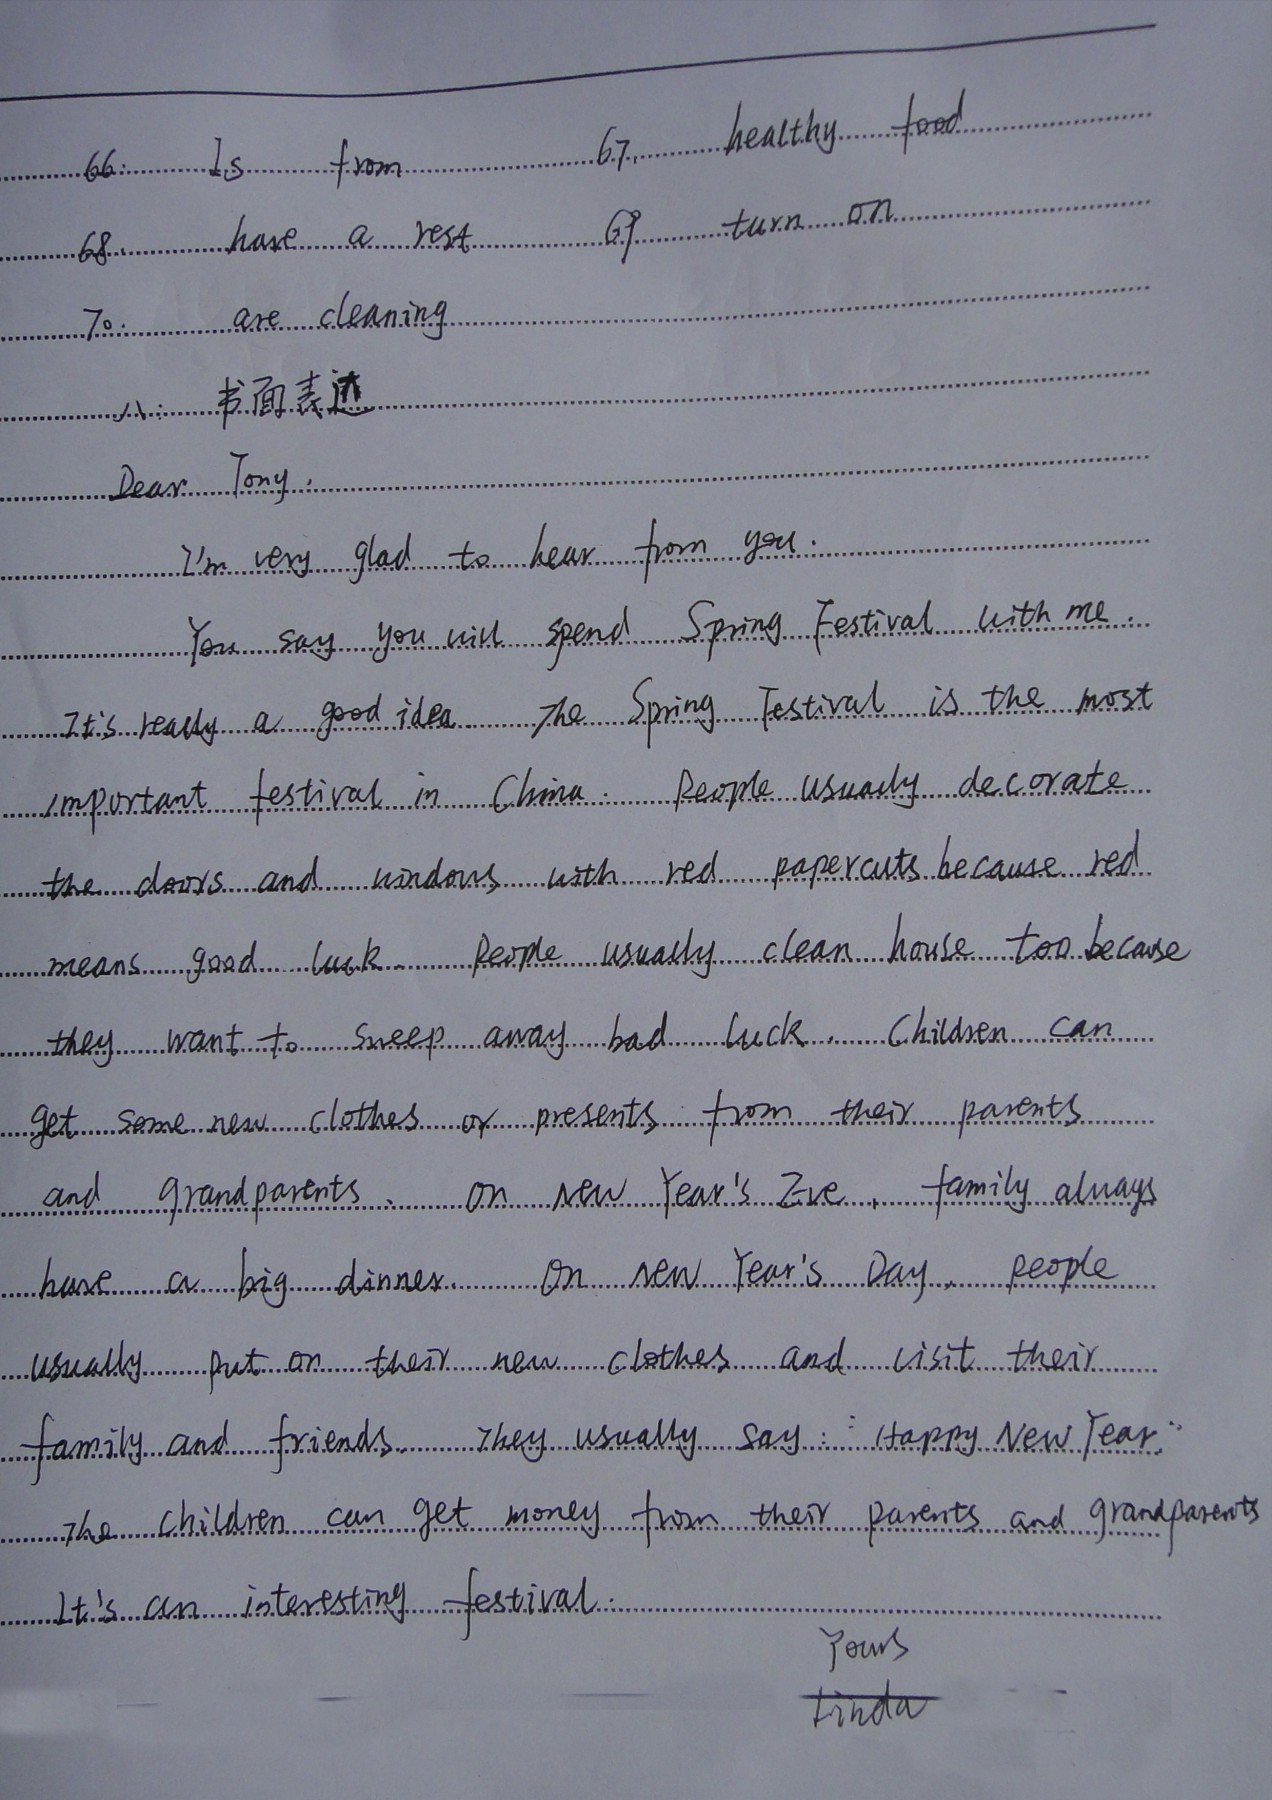 66. Is from 67. healthy food
68. have a rest 69 turn on
70. are cleaning
八: 书面表达
Dear Tony.
I'm very glad to hear from you.
You say you will spend Spring Festival with me.
It's really a good idea. The Spring Festival is the most
important festival in China. People usually decorate
the doors and windows with red papercuts because red
means good luck. People usually clean house too because
they want to sweep away bad luck. Children can
get some new clothes or presents from their parents
and grandparents. On new Year's Eve, family always
have a big dinner. On new Year's Day, people
usually put on their new clothes and visit their
family and friends. They usually say: "Happy New Year."
The children can get money from their parents and grandparents
It's an interesting festival.
Yours
Linda